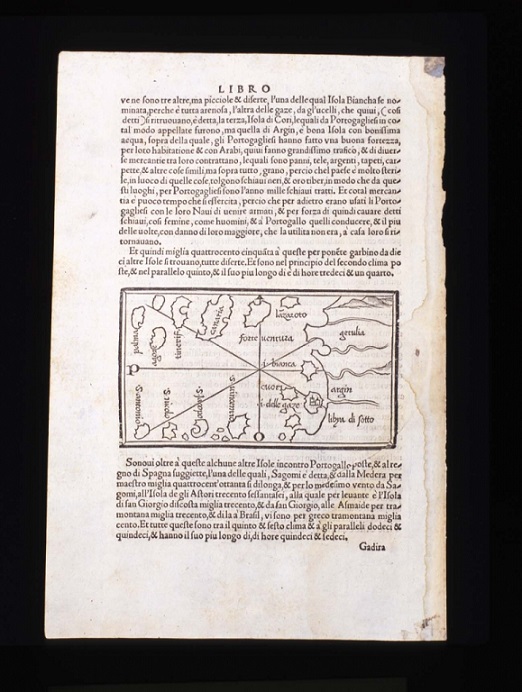 LIBRO
ve ne sono tre altre, ma picciole & diserte, l'una delle qual Isola Biancha se no-
minata, perche è tutta arenosa, l'altra delle gaze, da gl'ucelli, che quiui, (cosi
detti) si ritruouano, è detta, la terza, Isola di Cori, lequali da Portogagliesi in co-
tal modo appellate furono, ma quella di Argin, è bona Isola con bonissima
acqua, sopra della quale, gli Portogagliesi hanno fatto vna buona fortezza,
per loro habitatione & con Arabi, quiui fanno grandissimo trafico, & di diuer-
se mercantie tra loro contrattano, lequali sono panni, tele, argenti, tapeti, car-
pette, & altre cose simili, ma sopra tutto, grano, percio che'l paese è molto steri-
le, in luoco di quelle cose, tolgono schiaui neri, & oro tiber, in modo che da que-
sti luoghi, per Portogagliesi sono l'anno mille schiaui tratti. Et cotal mercan-
tia è puoco tempo che si essercita, percio che per adietro erano usati li Porto-
gagliesi con le loro Naui di uenire armati, & per forza di quindi cauare detti
schiaui, cosi femine, come huomini, & à Portogallo quelli conducere, & il piu
delle uolte, con danno di loro maggiore, che la utilita non era, à casa loro si ri-
tornauano.
Et quindi miglia quattrocento cinquāta à queste per ponēte garbino da die
ci altre Isole si trouano, tutte diserte. Et sono nel principio del secondo clima po
ste, & nel parallelo quinto, & il suo piu longo di è di hore tredeci & un quarto.
lāzaroto
canaria
forte uentura
getulia
tinerife
palma
i. bianca
argin
cuori
i. delle gaze
libya di sotto
s. antonio
s. nicolo
Sonoui oltre à queste alchune altre Isole incontro Portogallo poste, & al re-
gno di Spagna suggiette, l'una delle quali, Sagomi è detta, & dalla Medera per
maestro miglia quattrocent'ottanta si dilonga, & per lo medesimo vento da Sa-
gomi, all'Isola de gli Astori trecento sessantasei, alla quale per leuante è l'Isola
di san Giorgio discosta miglia trecento, & da san Giorgio, alle Asmaide per tra-
montana miglia trecento, & di la à Brasil, vi sono per greco tramontana miglia
cento. Et tutte queste sono tra il quinto & sesto clima & à gli paralleli dodeci &
quindeci, & hanno il suo piu longo di, di hore quindeci & sedeci.
Gadira